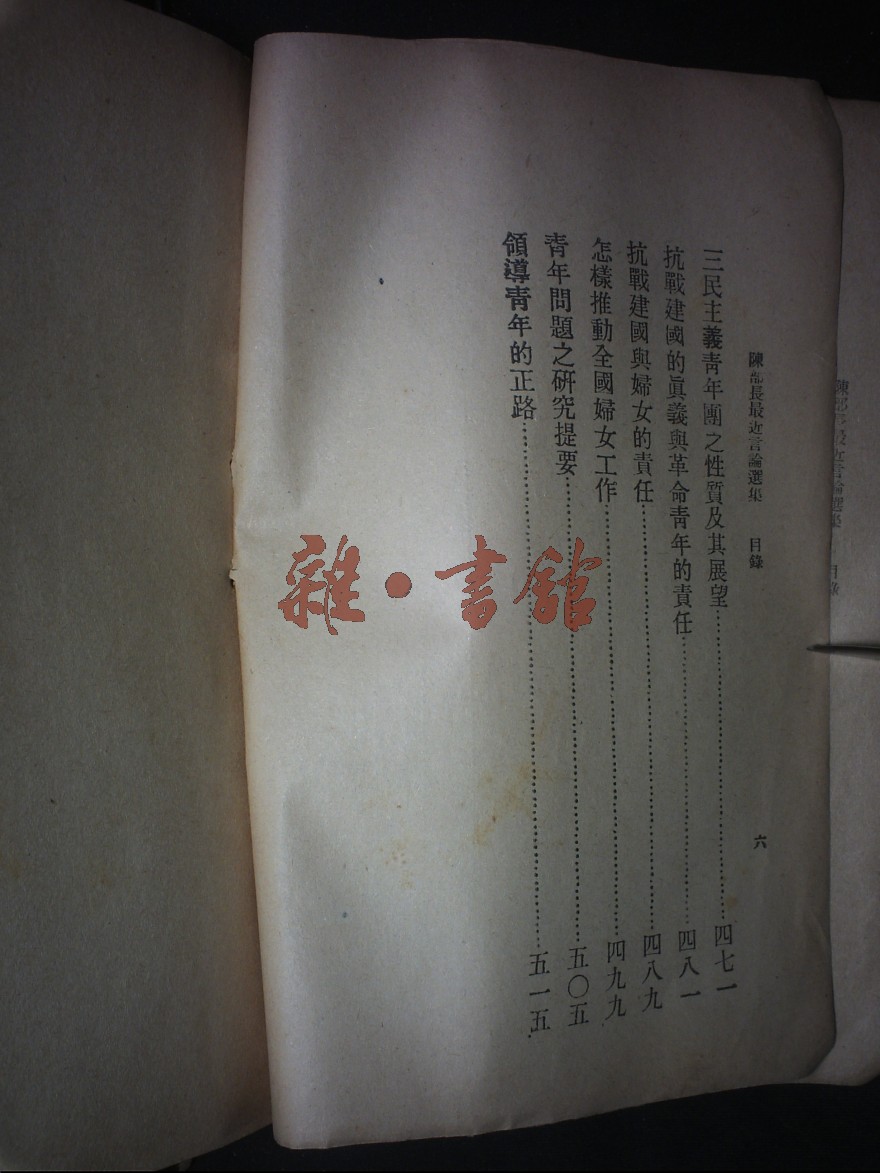 陳部長最近言論選集　目錄
六
三民主義靑年團之性質及其展望……四七一
抗戰建國的眞義與革命靑年的責任……四八一
抗戰建國與婦女的責任……四八九
怎樣推動全國婦女工作……四九九
靑年問題之硏究提要……五〇五
領導靑年的正路……五一五
雜·書館